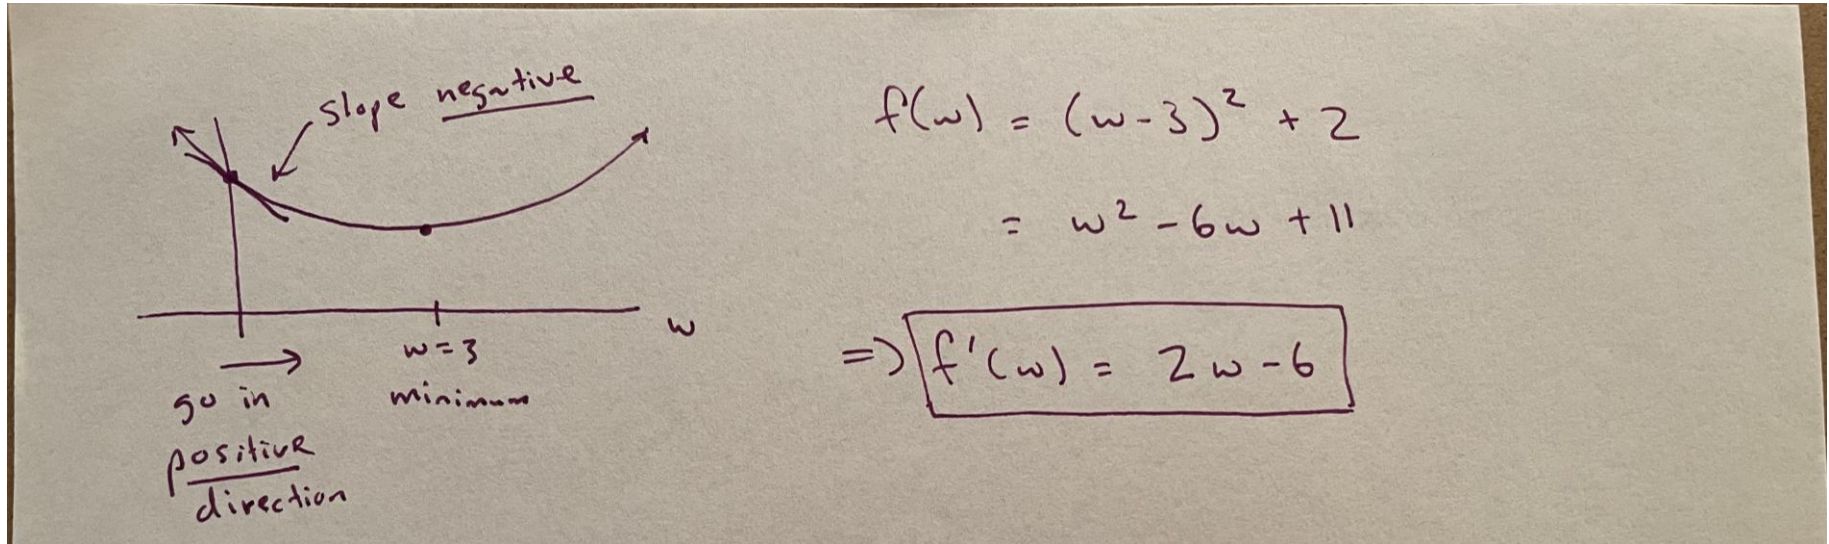 slope negative
w
w=3
minimum
go in
positive
direction
f(w) = (w-3)² + 2
= w² - 6w + 11
=> f'(w) = 2w-6